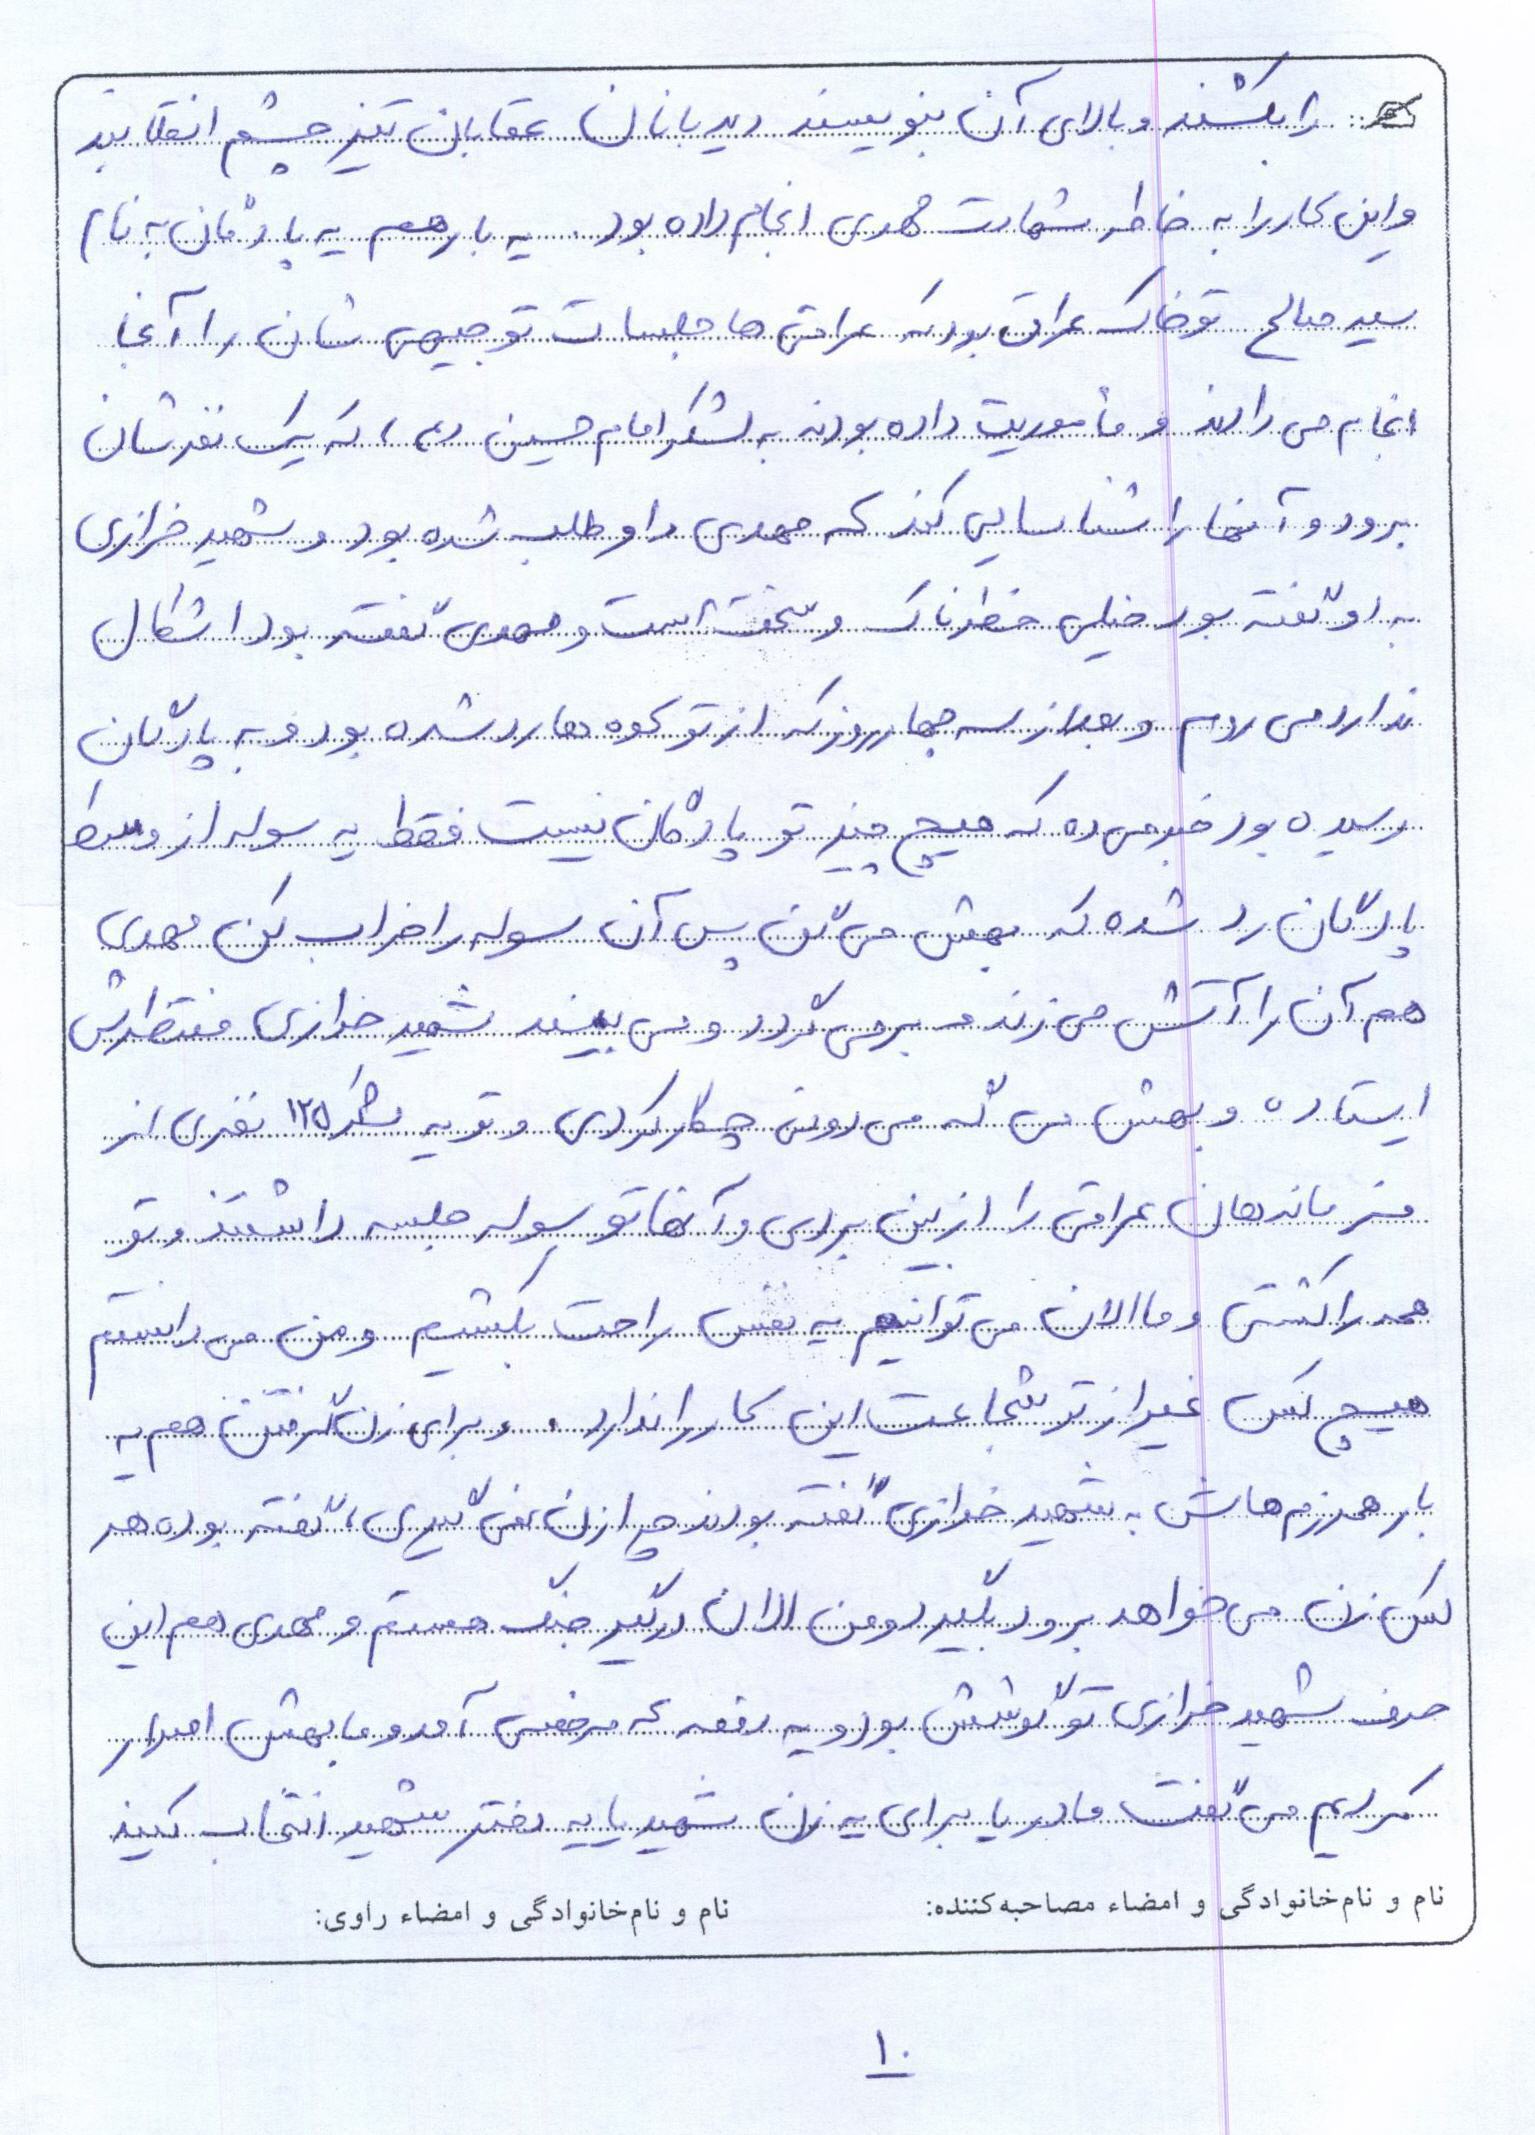 را بکشند و بالای آن بنویسند دیدبانان عقابان تیز چشم انقلابند
و این کار را به خاطر شهادت مهدی انجام داده بود. یه بار هم یه پادگان به نام
سید صالح تو خاک عراق بود که عراقی ها جلسات توجیهی شان را آنجا
انجام می دادند و مأموریت داده بودند به لشکر امام حسین (ع)، که یک نفرشان
برود و آنجا را شناسایی کند که مهدی داوطلب شده بود و شهید خرازی
به او گفته بود خیلی خطرناک و سخت است و مهدی گفته بود اشکال
ندارد می روم و بعد از سه چهار روز که از تو کوه ها رد شده بود و به پادگان
رسیده بود خبر می ده که هیچ چیز تو پادگان نیست فقط یه سوله از وسط
پادگان رد شده که بهش می گن پس آن سوله را خراب کن مهدی
هم آن را آتش می زند و برمی گردد و می بیند شهید خرازی منتظرش
ایستاده و بهش می گه می دونی چکار کردی و تو یه لشکر ۱۲۵ نفری از
فرماندهان عراقی را از بین بردی و آنها تو سوله جلسه داشتند و تو
همه را کشتی و ما الان می توانیم یه نفس راحت بکشیم و من می دانستم
هیچ کس غیر از تو شجاعت این کار را ندارد. و برای زن گرفتن هم یه
بار همرزم هاش به شهید خرازی گفته بودند چرا زن نمی گیری، گفته بوده هر
کس زن می خواهد برود بگیرد و من الان درگیر جنگ هستم و مهدی هم این
حرف شهید خرازی تو گوشش بود و یه دفعه که مرخصی آمد و ما بهش اصرار
کردیم می گفت مادر یا برای یه زن شهید یا یه دختر شهید انتخاب کنید
نام و نام‌خانوادگی و امضاء مصاحبه‌کننده: نام و نام‌خانوادگی و امضاء راوی:
۱۰